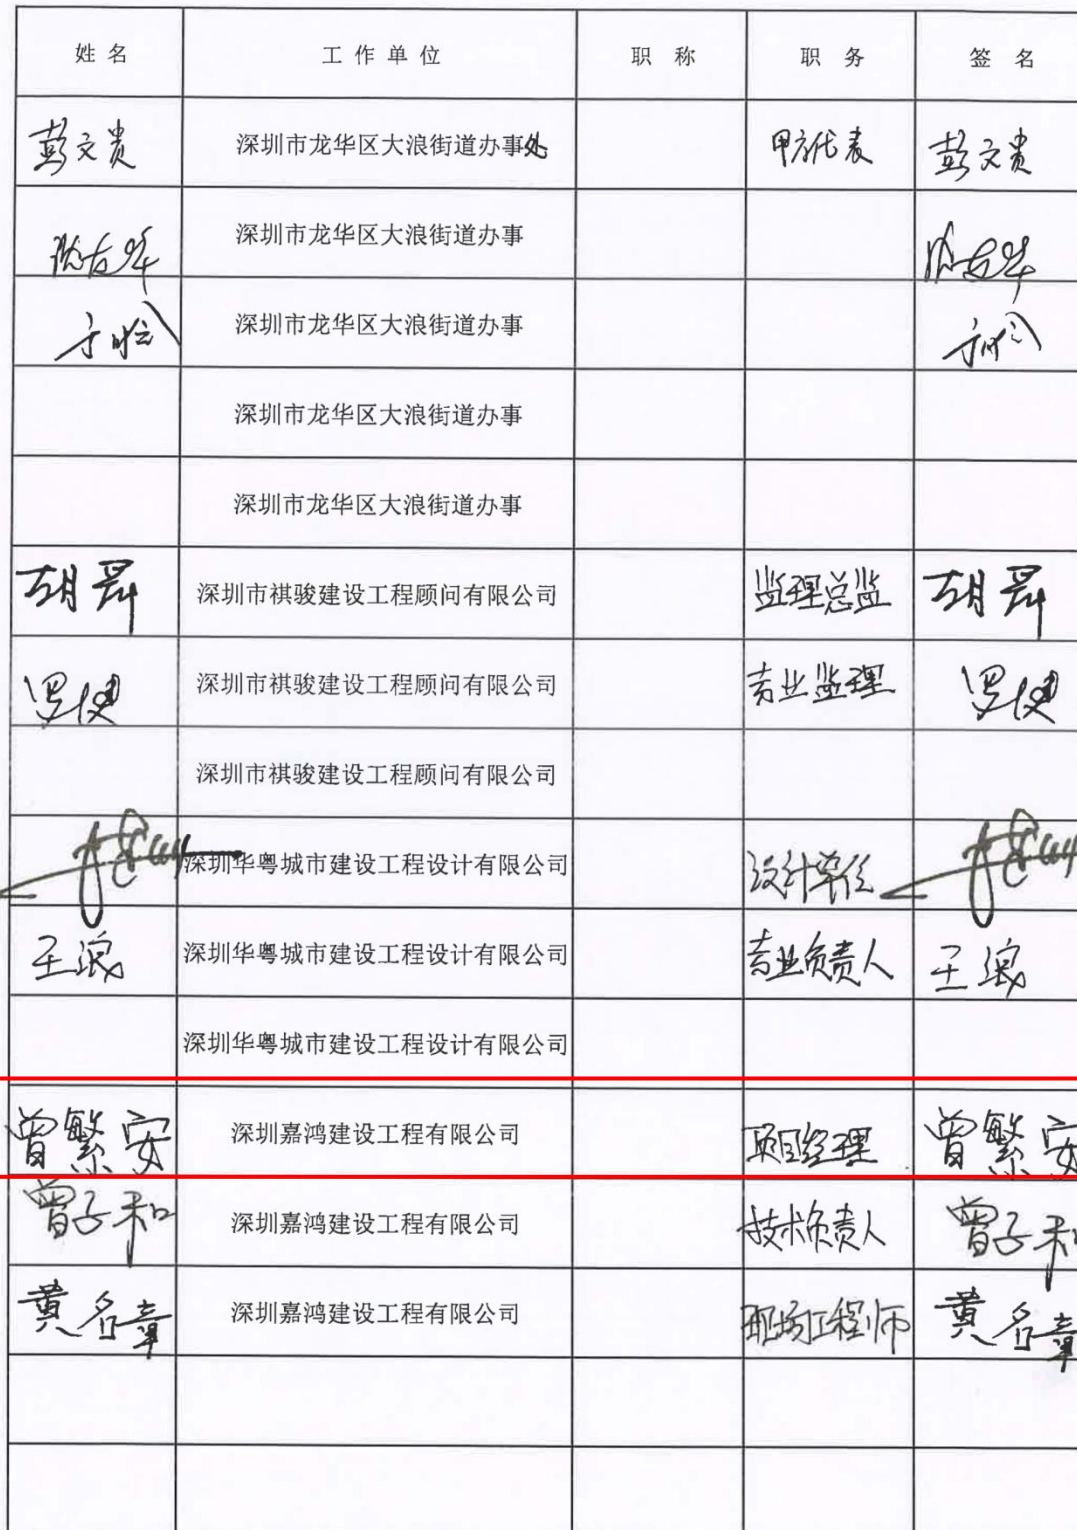 姓名 工作单位 职称 职务 签名
彭文贵 深圳市龙华区大浪街道办事处 甲方代表 彭文贵
深圳市龙华区大浪街道办事
深圳市龙华区大浪街道办事
深圳市龙华区大浪街道办事
深圳市龙华区大浪街道办事
胡 深圳市祺骏建设工程顾问有限公司 监理总监 胡
罗健 深圳市祺骏建设工程顾问有限公司 专业监理 罗健
深圳市祺骏建设工程顾问有限公司
深圳华粤城市建设工程设计有限公司 设计单位
王浪 深圳华粤城市建设工程设计有限公司 专业负责人 王浪
深圳华粤城市建设工程设计有限公司
曾繁安 深圳嘉鸿建设工程有限公司 项目经理 曾繁安
曾子和 深圳嘉鸿建设工程有限公司 技术负责人 曾子和
黄名章 深圳嘉鸿建设工程有限公司 现场工程师 黄名章